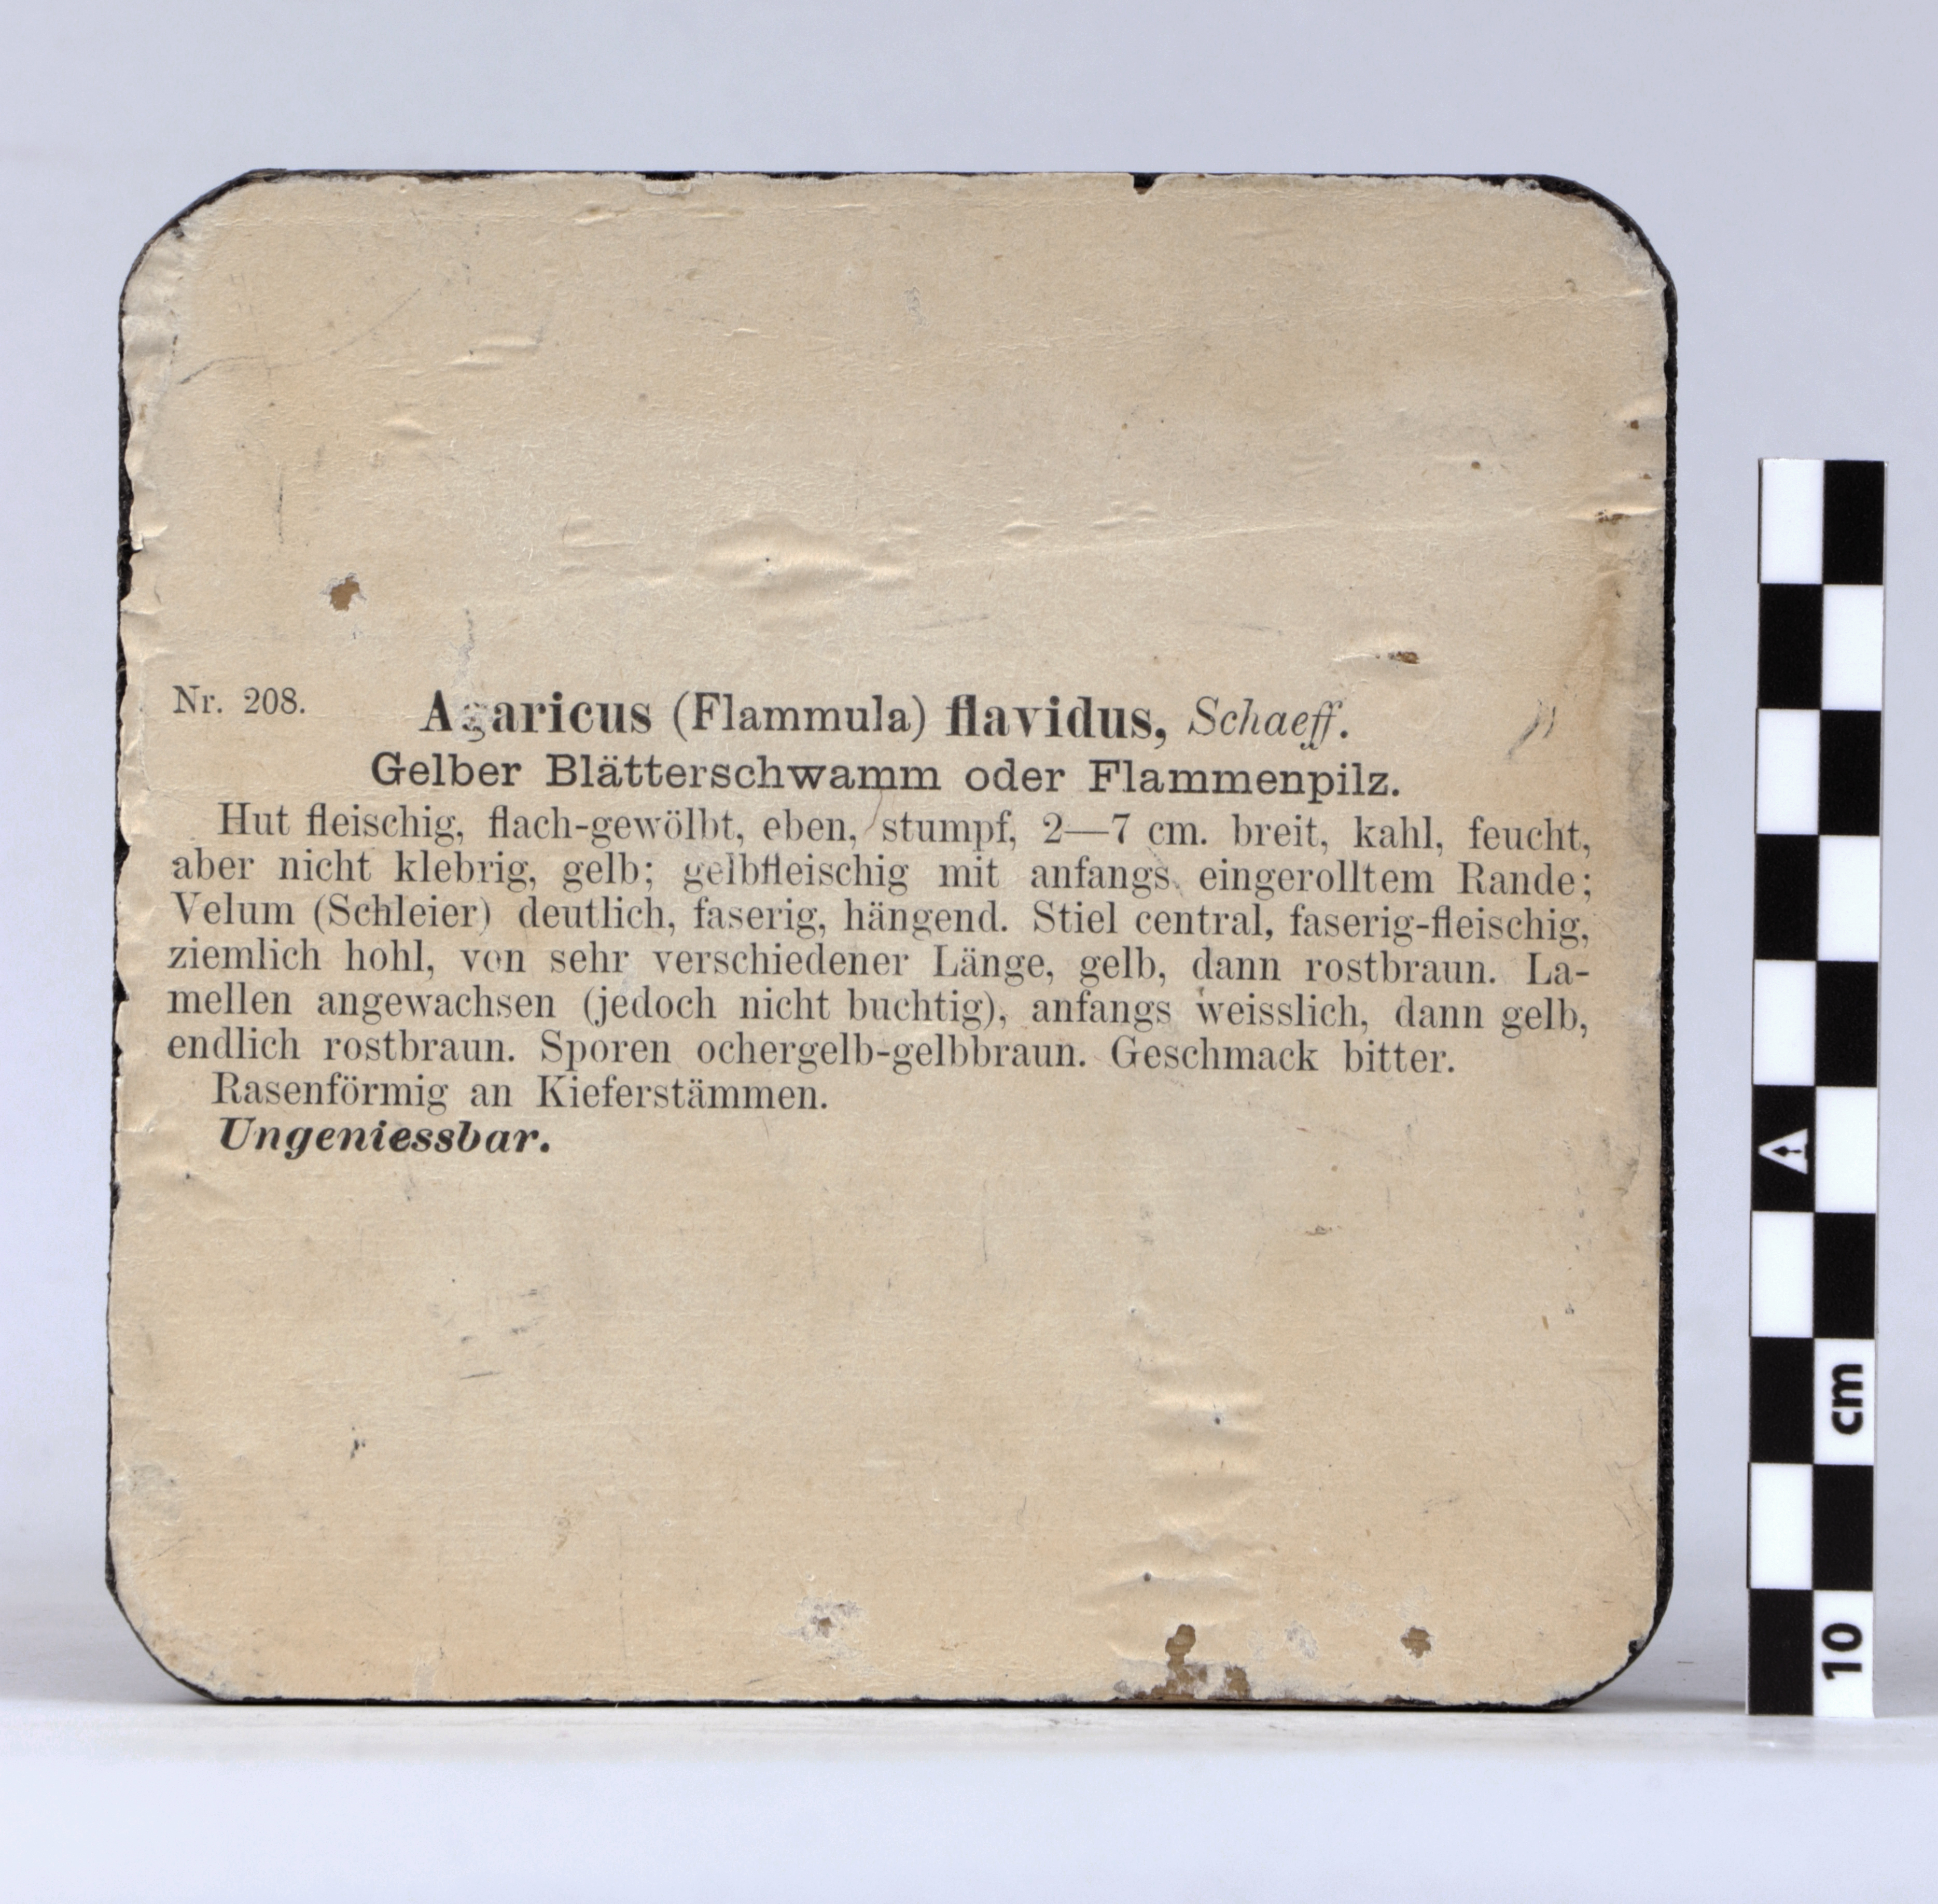 Nr. 208.
Agaricus (Flammula) flavidus, Schaeff.
Gelber Blätterschwamm oder Flammenpilz.
Hut fleischig, flach-gewölbt, eben, stumpf, 2—7 cm. breit, kahl, feucht,
aber nicht klebrig, gelb; gelbfleischig mit anfangs eingerolltem Rande;
Velum (Schleier) deutlich, faserig, hängend. Stiel central, faserig-fleischig,
ziemlich hohl, von sehr verschiedener Länge, gelb, dann rostbraun. La-
mellen angewachsen (jedoch nicht buchtig), anfangs weisslich, dann gelb,
endlich rostbraun. Sporen ochergelb-gelbbraun. Geschmack bitter.
Rasenförmig an Kieferstämmen.
Ungeniessbar.
A
cm
10